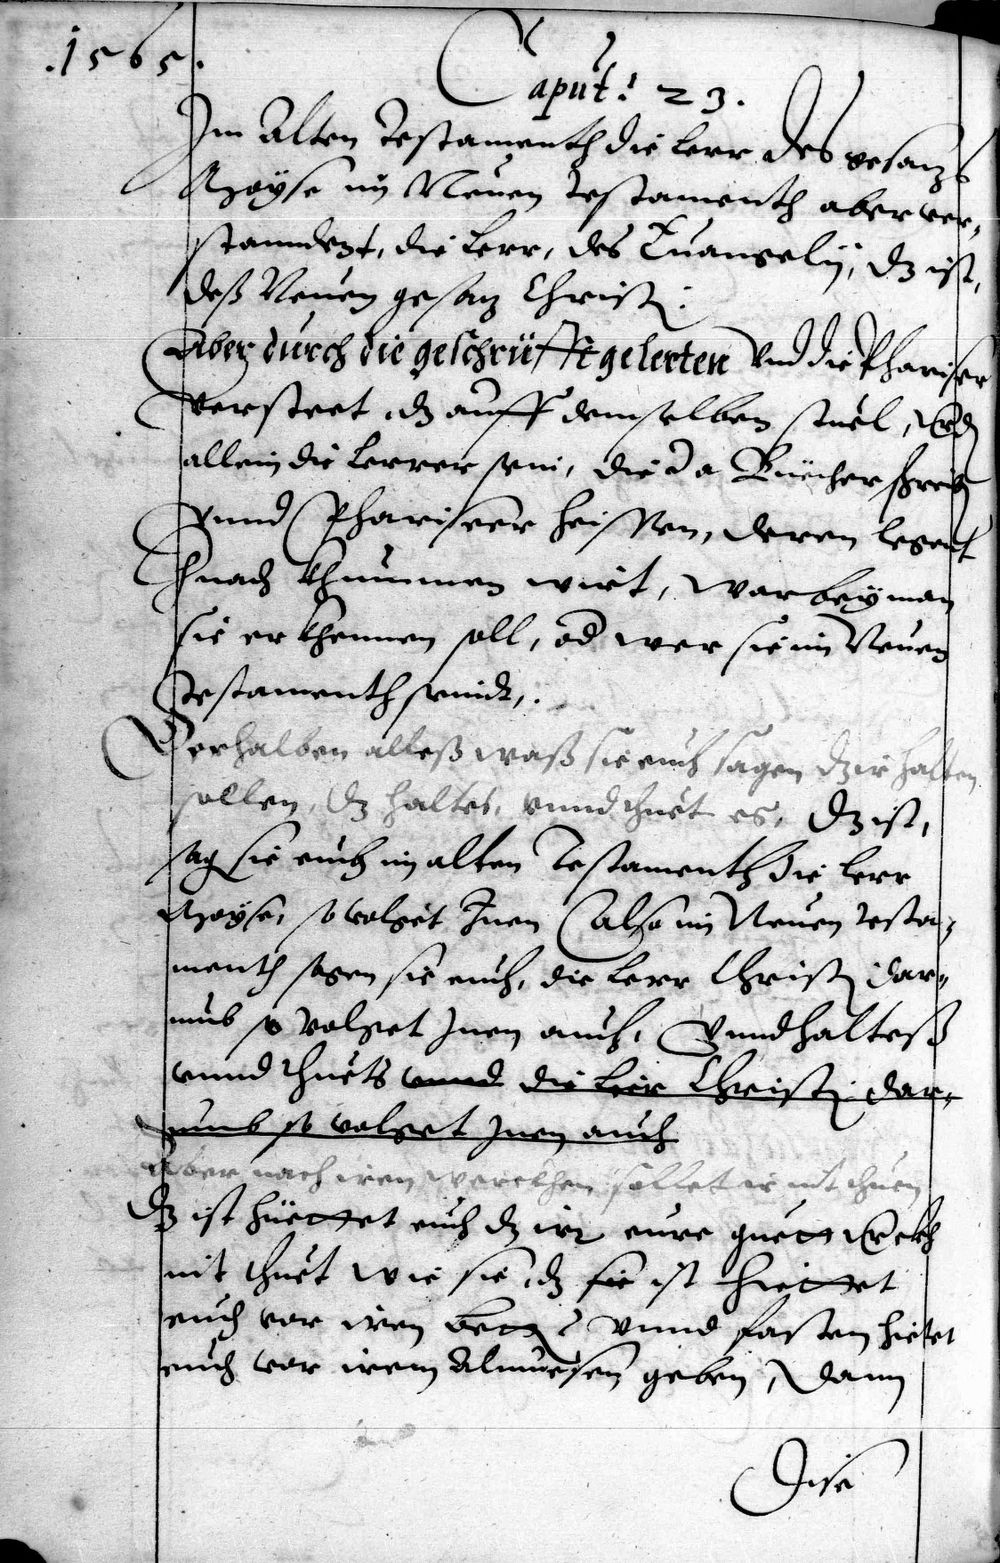 .1565.
Caput: 23.
Im Alten Testamenth die lerr des gesatzs
Moÿse im Neuen Testamenth aber ver-
stanndent, die lerr, des Euangelÿ, dz ist,
deß Neuen gesatz Christj:
Aber durch die geschrüfft gelerten Vnd die Phariseer
Versteet, dz auff demselben stuel,
allein die lerrer sein, die da Büecher schreib
Vnnd Phariseer heissen, deren
hnach khummen wirt, warbeÿ man
sie erkhennen soll, od wer sie im Neuen
Testamenth seindt,.
Derhalben alles waß sie euch sagen dz ir halten
sollen, dz haltes, vnnd thuet es, dz ist,
sag sie euch im alten Testamenth die lerr
Moÿse, so volget Inen Also im Neuen testa-
menth sagen sie euch, die lerr Christj dar-
umb so volget Inen auch, Vnnd halteß
vnnd thuets vnnd die lerr Christj dar-
umb so volget Inen auch
Aber nach iren werckhen sollet ir nit thuen
Dz ist hüettet euch dz ir eure guett werckh
nit thuet wie sie, dz sie ist hiettet
euch vor iren bett Vnnd fasten hietet
euch vor irem Almuesen geben, dann
Dise